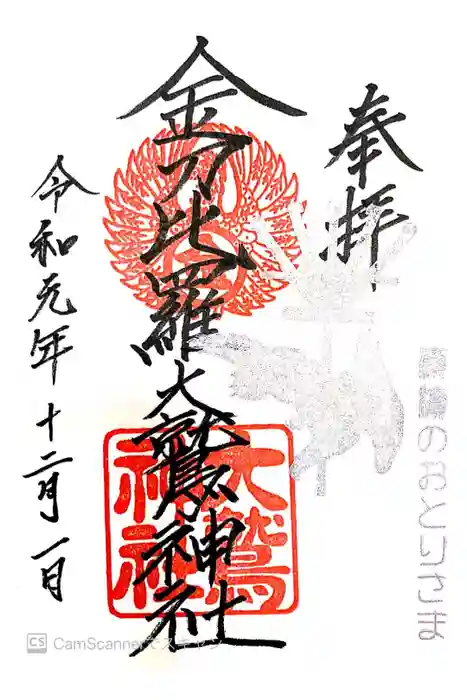 奉拝
金刀比羅
大鷲神社
令和元年十二月一日
大鷲
神社
のおとりさま
CS CamScannerでスキャン